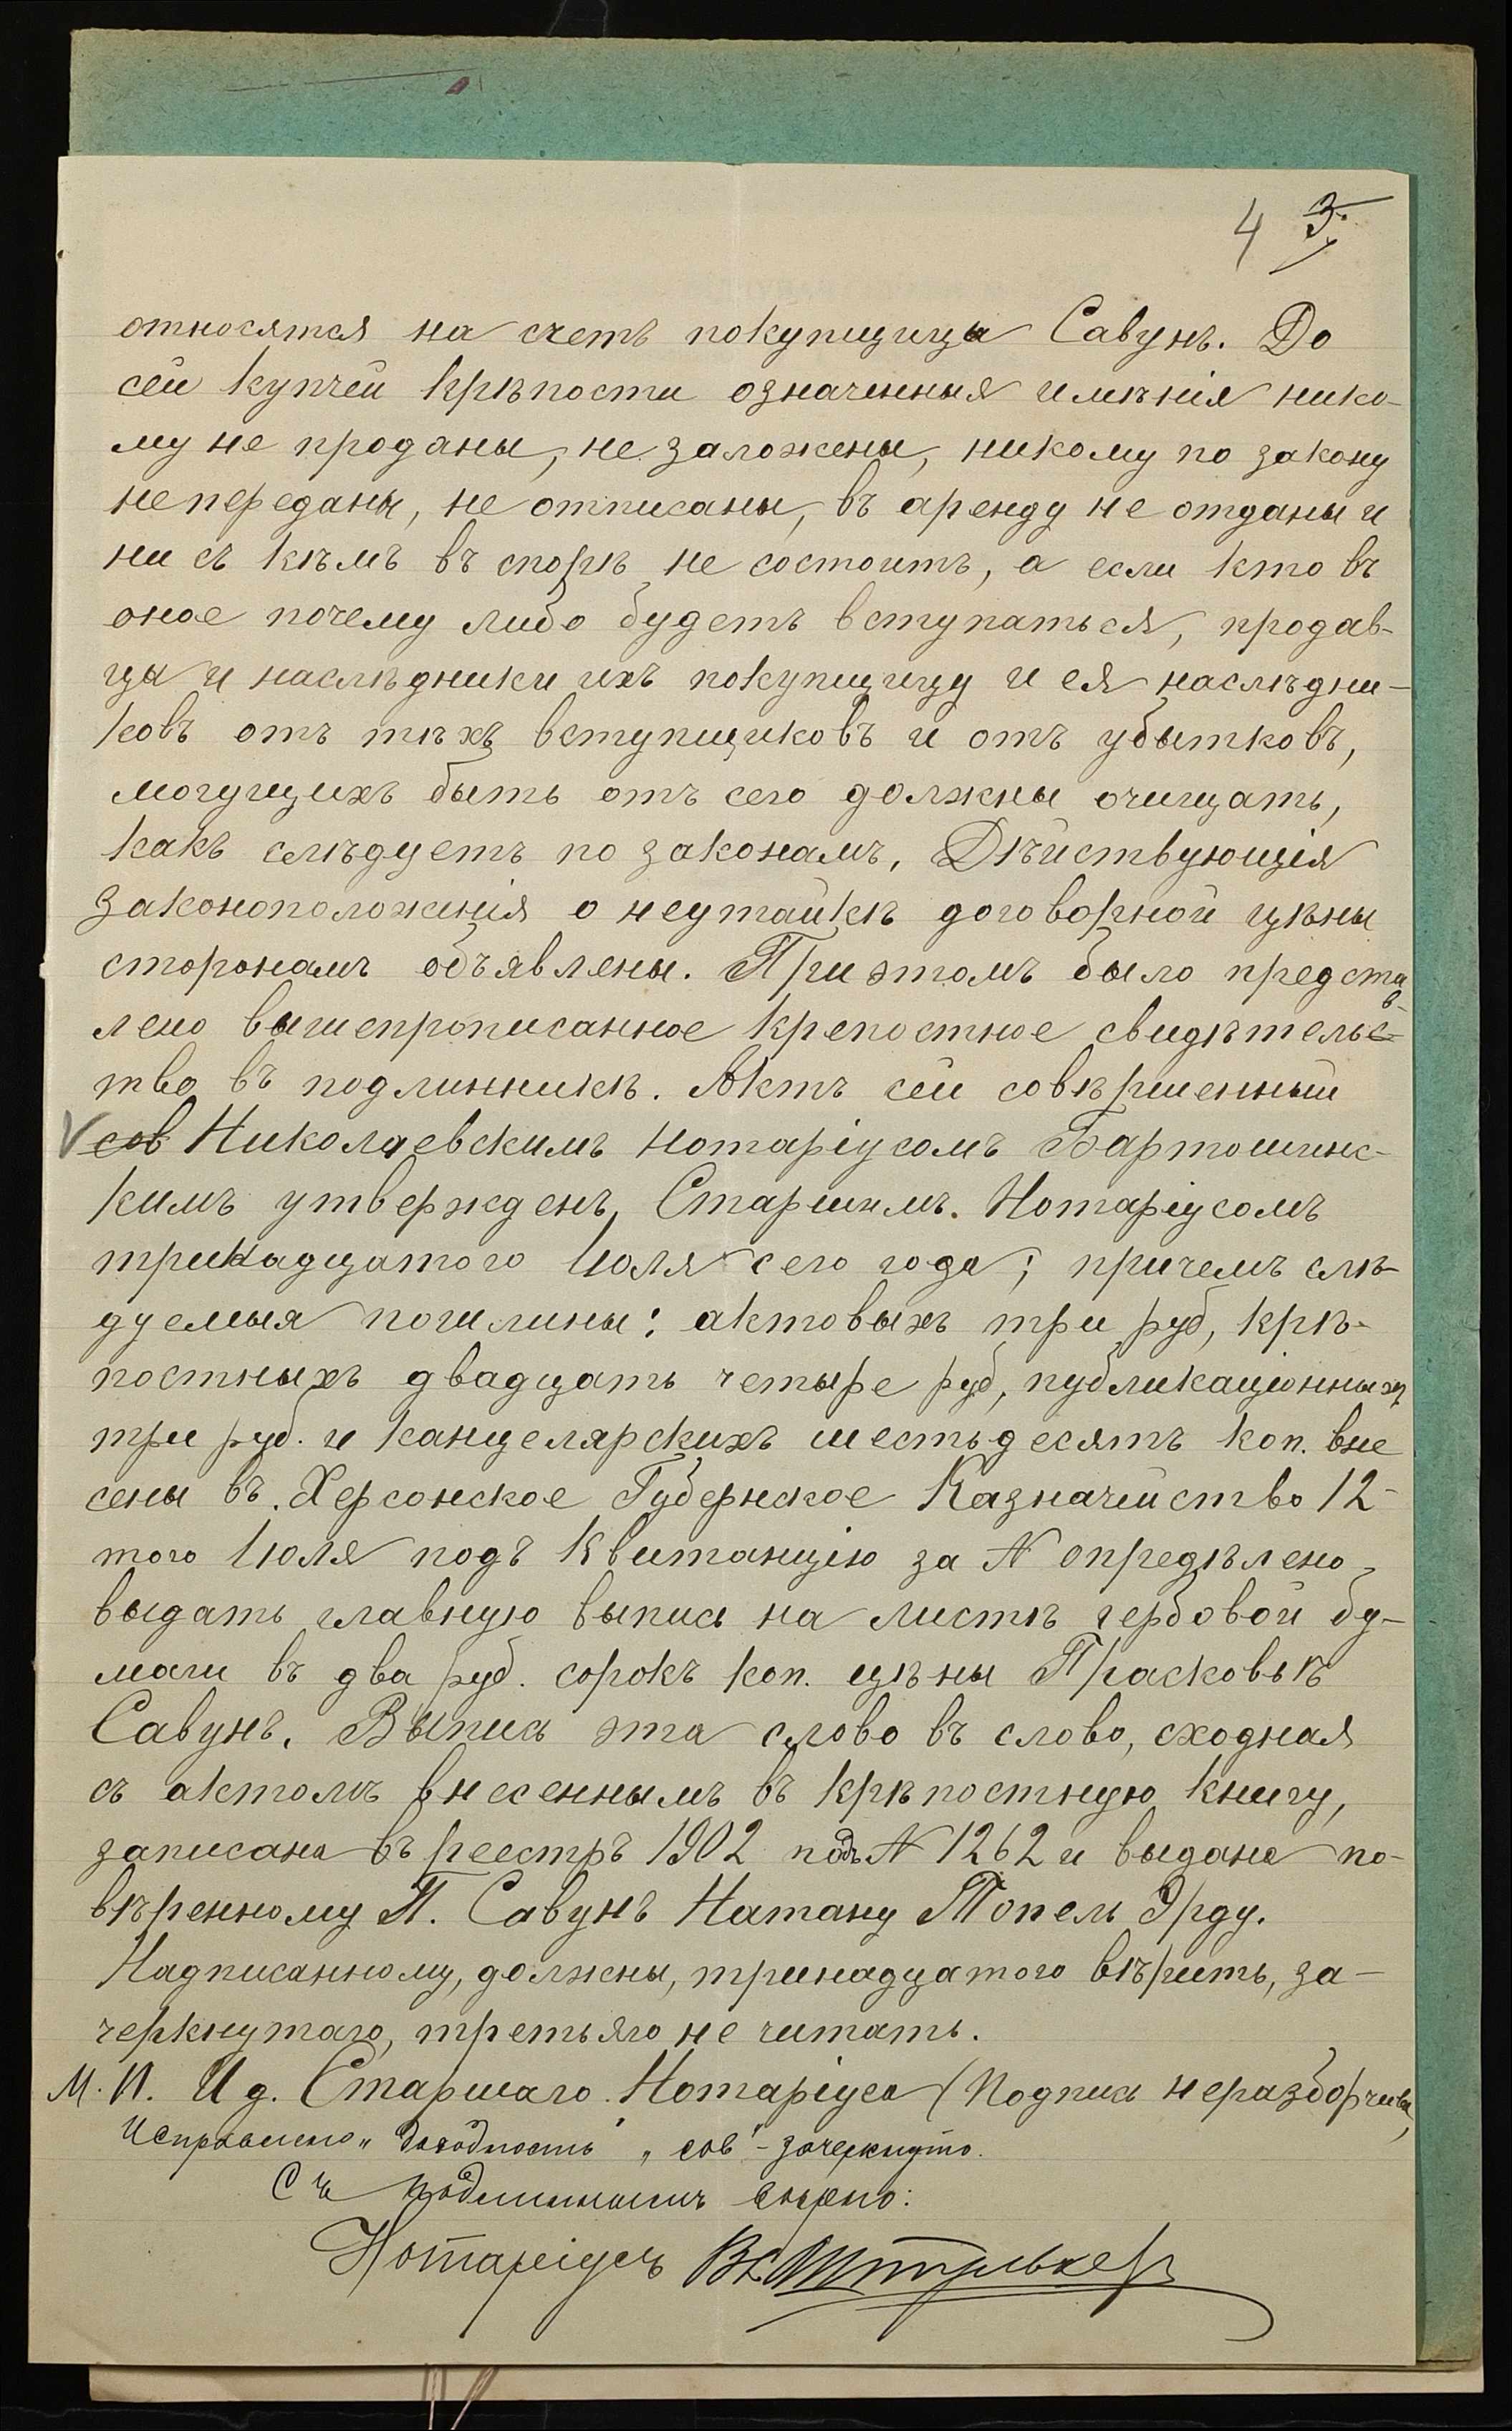 4 3.
относятся на счетъ покупщицы Савунъ. До
сей купчей крѣпости означенныя имѣнія нико-
му не проданы, не заложены, никому по закону
не переданы, не отписаны, въ аренду не отданы и
ни съ кѣмъ въ спорѣ не состоитъ, а если кто въ
оное почему либо будетъ вступаться, продав-
цы и наслѣдники ихъ покупщицу и ея наслѣдни-
ковъ отъ тѣхъ вступщиковъ и отъ убытковъ,
могущихъ быть отъ сего должны очищать,
какъ слѣдуетъ по законамъ, Дѣйствующія
законоположенія о неутайкѣ договорной цѣны
сторонамъ объявлены. При этомъ было представ-
лено вышепрописанное крепостное свидѣтельс-
тво въ подлинникѣ. Актъ сей совѣршенный
сов Николаевскимъ нотаріусомъ Бартошинс-
кимъ утвержденъ, Старшимъ. Нотаріусомъ
тринадцатого Іюля сего года; причемъ слѣ-
дуемыя пошлины: актовыхъ три руб, крѣ-
постныхъ двадцать четыре руб, публикаціонныхъ
три руб. и канцелярскихъ шестьдесятъ коп. вне
сены въ. Херсонское Губернское Казначейство 12-
того Іюля подъ Квитанцію за N опредѣлено
выдать главную выпись на листѣ гербовой бу-
маги въ два руб. сорокъ коп. цѣны Прасковьѣ
Савунъ. Выпись эта слово въ слово, сходная
съ актомъ внесеннымъ въ крѣпостную книгу,
записана въ реестръ 1902 подъ N 1262 и выдана по-
вѣренному П. Савунъ Натану Топель Эрду.
Надписанному, должны, тринадцатого вѣрить, за-
черкнутаго, третьяго не читать.
М. П. И д. Старшаго Нотаріуса (Подпись неразборчива)
Исправлено „ доходность" „ сов" - зачеркнуто.
Съ подлиннымъ вѣрно:
Нотаріусъ